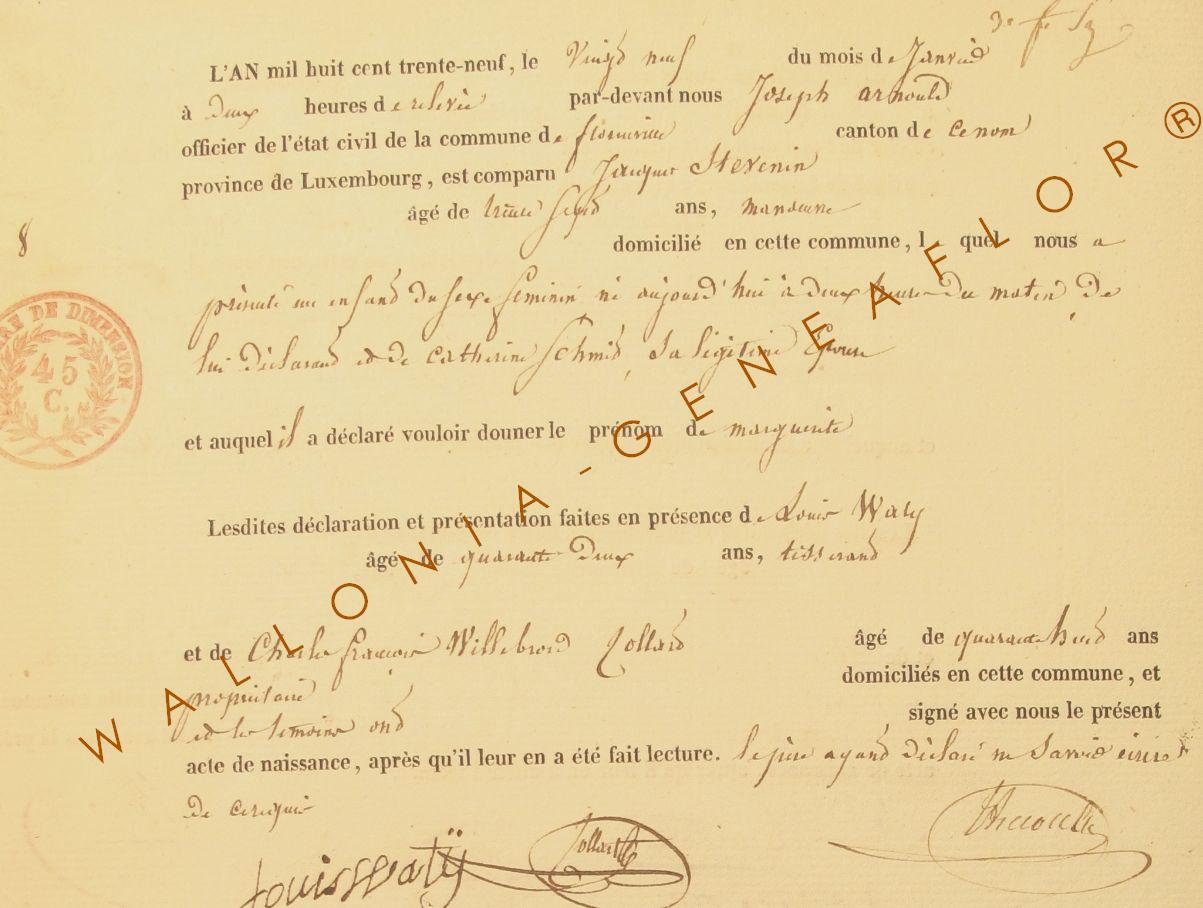 L'AN mil huit cent trente-neuf, le Vingt neuf du mois de Janvier
à deux heures de relevée par-devant nous Joseph arnould
officier de l'état civil de la commune de florenville canton de
province de Luxembourg, est comparu Jacques Hevenin
âgé de trente sept ans, manœuvre
domicilié en cette commune, lequel nous a
8
présenté un enfant du sexe féminin né aujourd'hui à deux heures du matin de
TIMBRE DE DIMENSION
45
C.
lui déclarant et de Catherine Schmit, sa légitime Epouse
et auquel il a déclaré vouloir donner le prénom de marguerite
Lesdites déclaration et présentation faites en présence de Louis Waty
âgé de quarante deux ans, tisserand
et de Charles françois Willebrord Collard âgé de quarante huit ans
propriétaire domiciliés en cette commune, et
et les témoins ont signé avec nous le présent
acte de naissance, après qu'il leur en a été fait lecture. le père ayant déclaré ne savoir écrire
de ce requis
Louis Waty Collard
WALLONIA-GENEAFLOR®